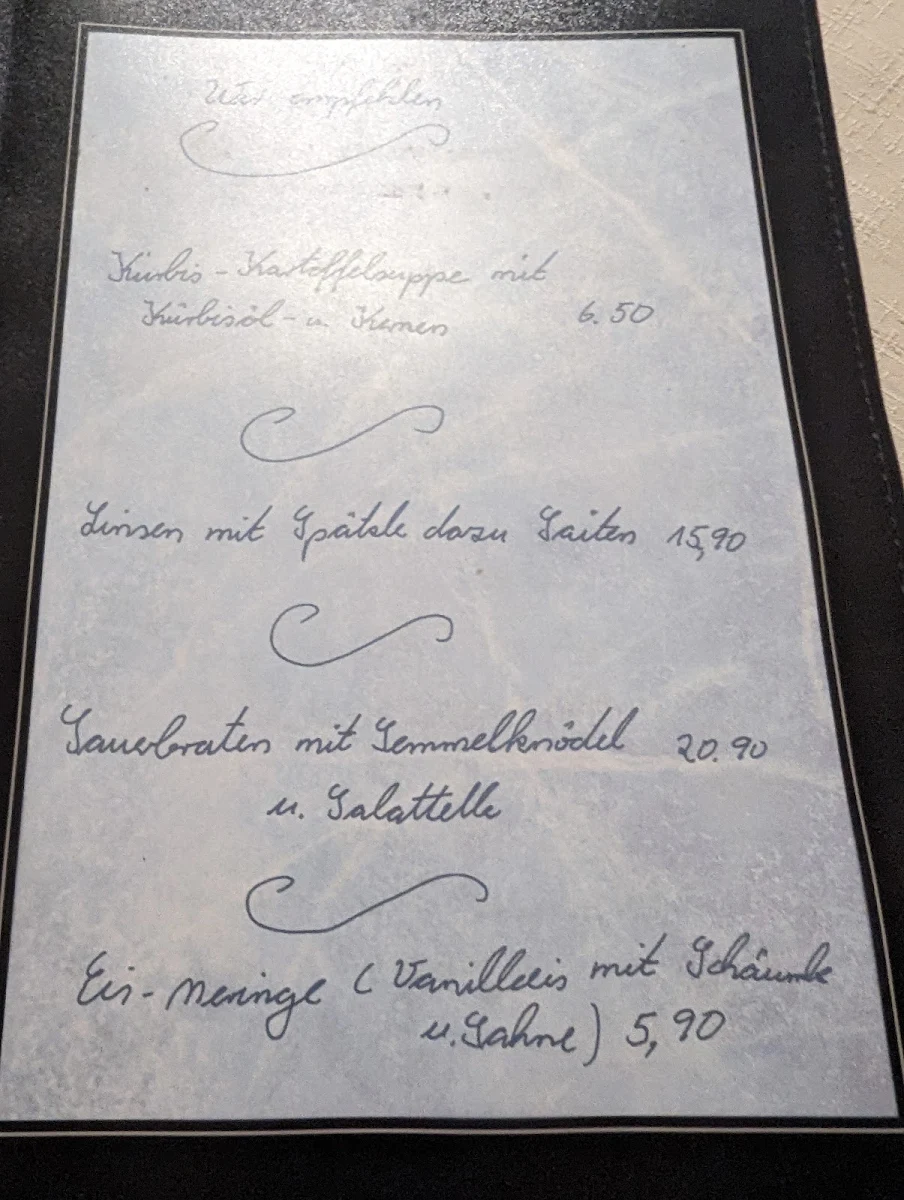 Wir empfehlen
Kürbis-Kartoffelsuppe mit
Kürbisöl- u. Kernen 6.50
Linsen mit Spätzle dazu Saiten 15,90
Sauerbraten mit Semmelknödel 20.90
u. Salattelle
Eis-Meringe ( Vanilleeis mit Schäumle
u. Sahne) 5,90